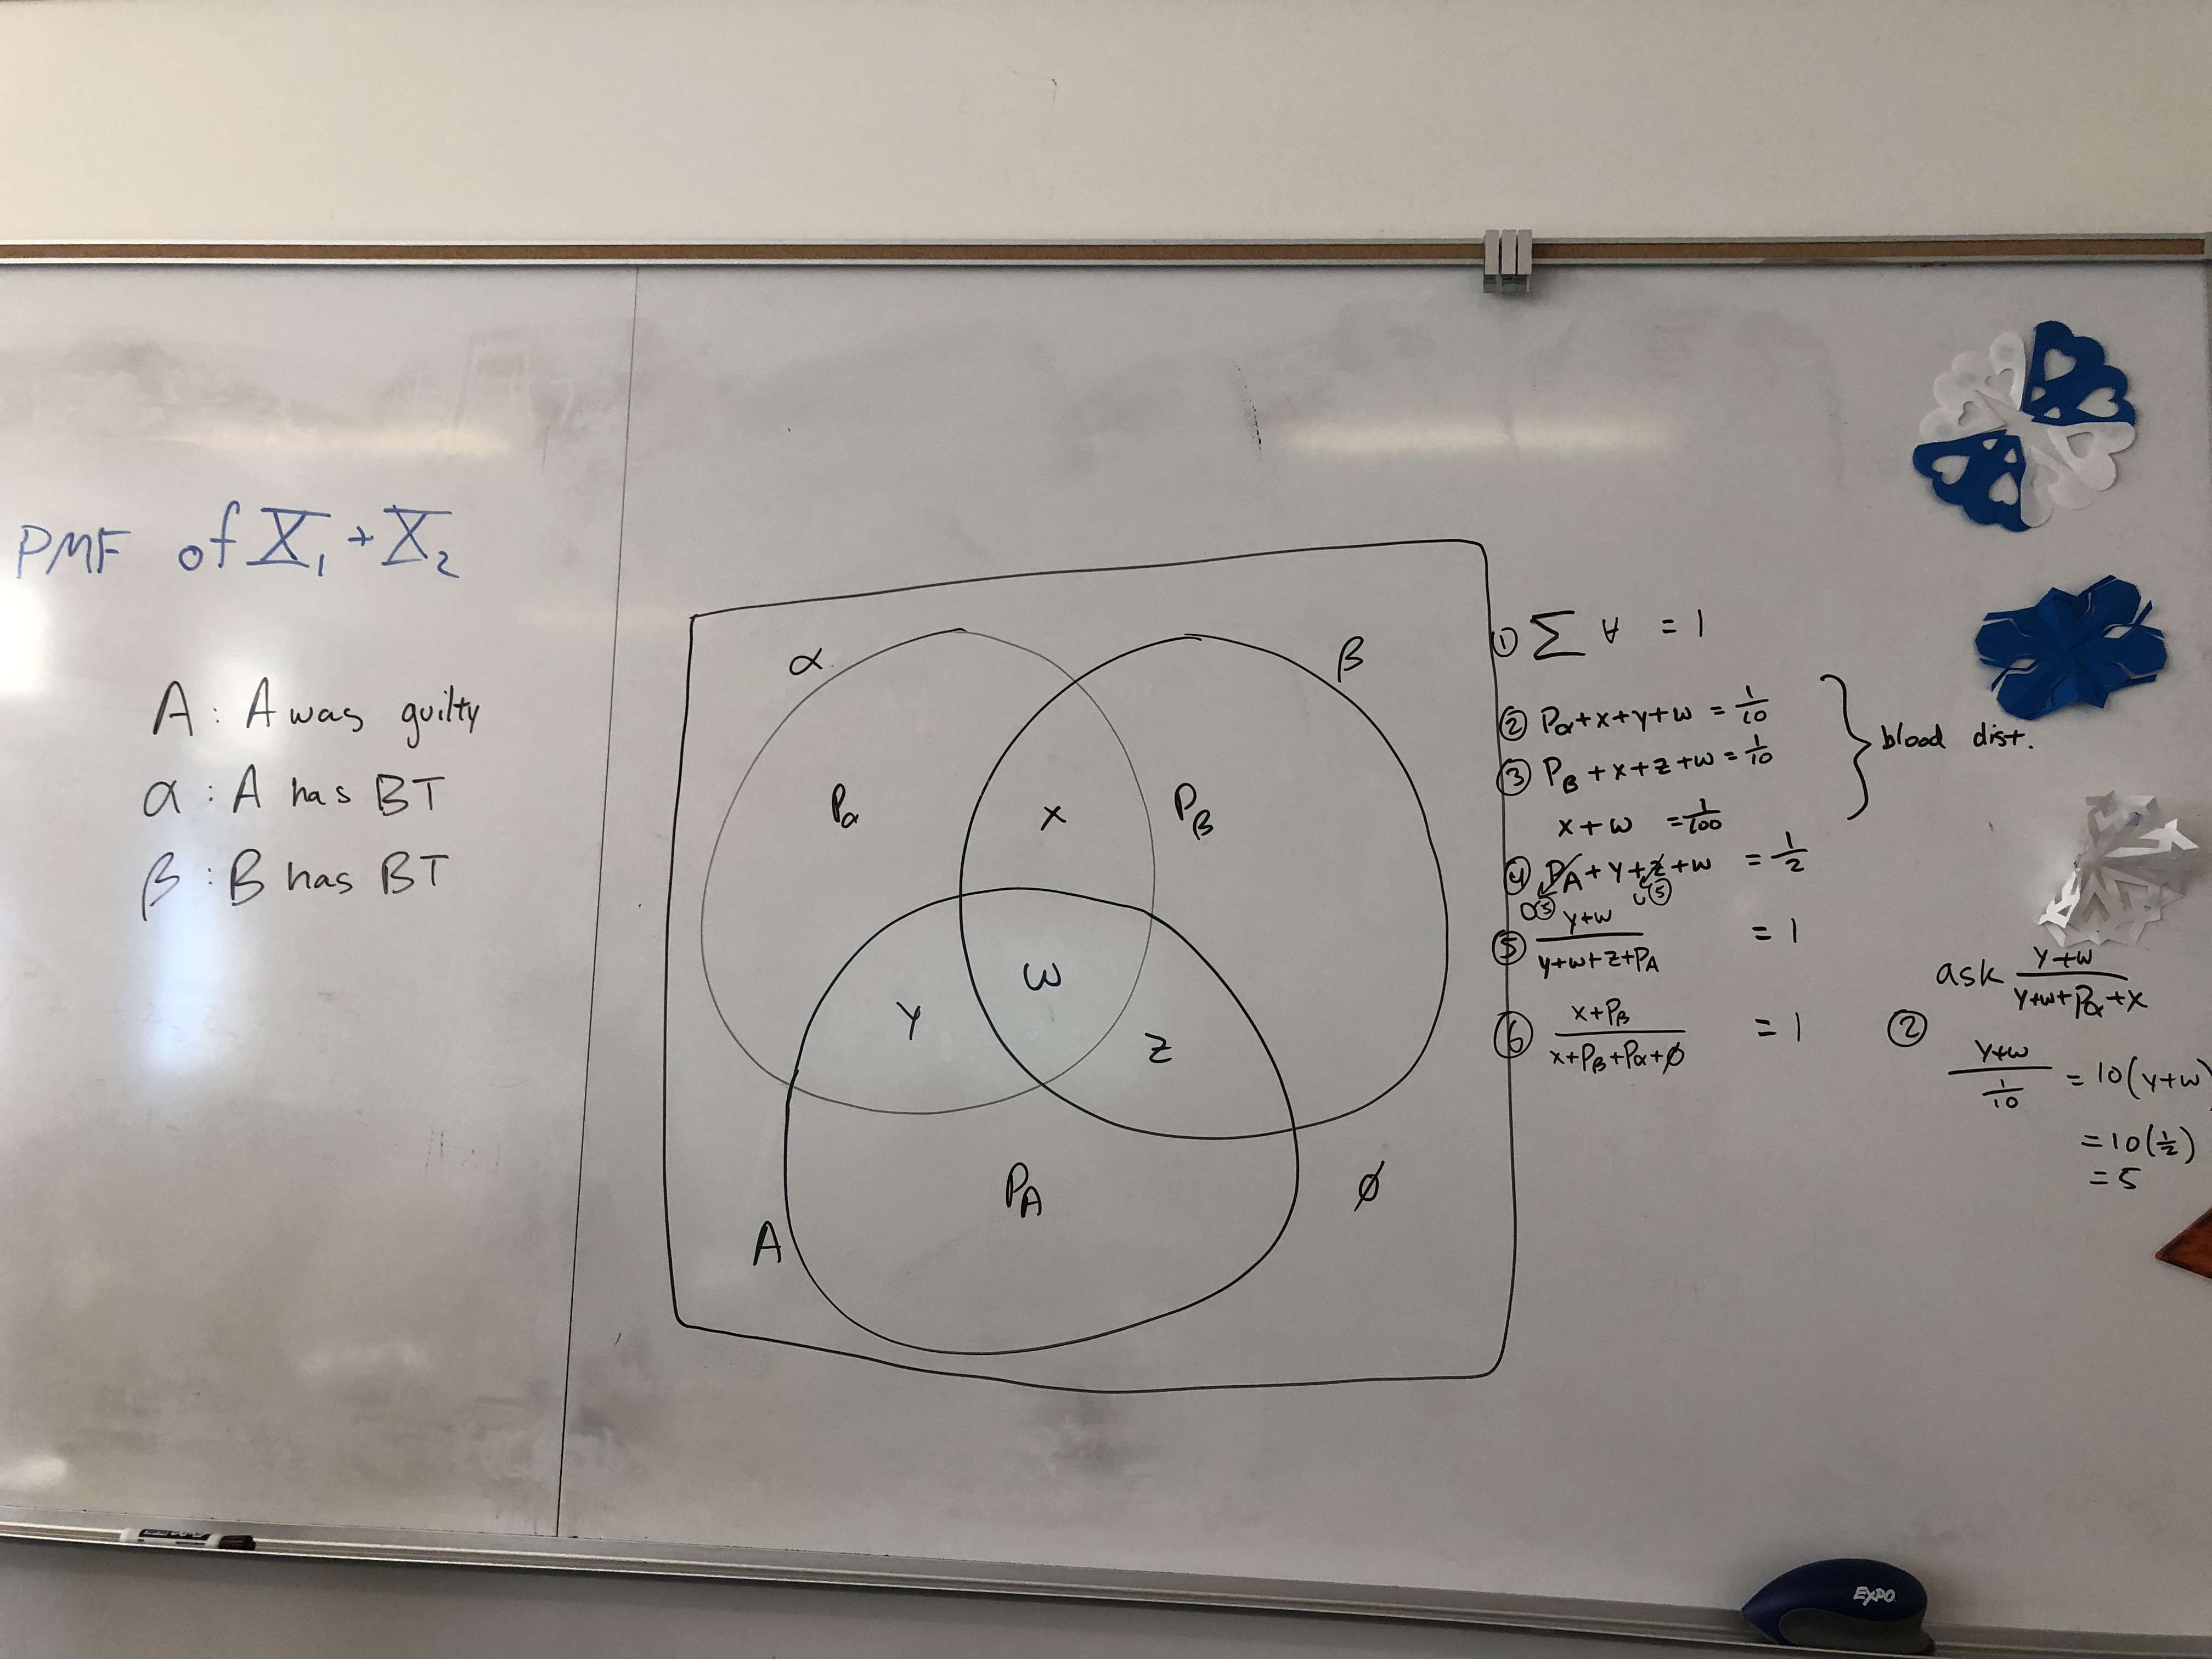 PMF of X₁ + X₂
A : A was guilty
α : A has BT
β : B has BT
α
β
Pα
x
Pβ
w
y
z
PA
A
∅
① ∑ ∀ = 1
② Pα + x + y + w = 1/10
③ Pβ + x + z + w = 1/10
x + w = 1/100
} blood dist.
④ PA + y + z + w = 1/2
0 ⑤
0 ⑤
⑤ (y+w)/(y+w+z+PA) = 1
⑥ (x+Pβ)/(x+Pβ+Pα+∅) = 1
ask (y+w)/(y+w+Pα+x)
② (y+w)/(1/10) = 10(y+w)
= 10(1/2)
= 5
EXPO